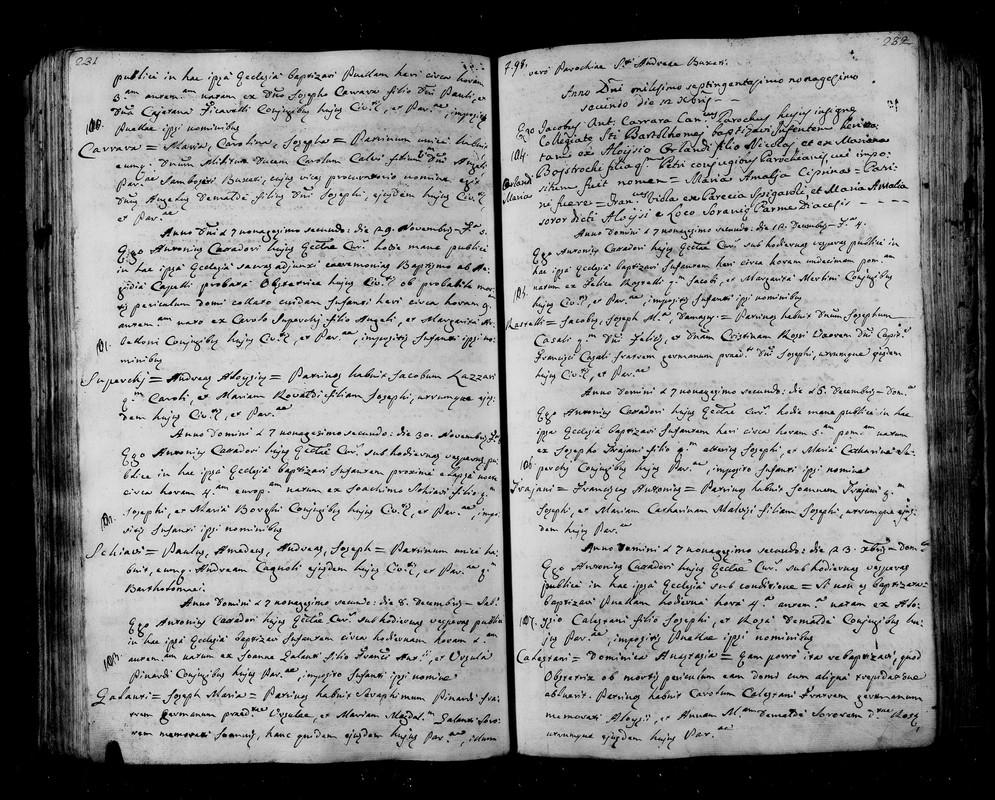 231
publicè in hac ipsa Ecclesia baptizavi Puellam heri circa horam
3.am aurem.am natam ex Dño Josepho Carrara filio Dñi Pauli, et
Dña Cajetana Ficarelli Conjugibus hujus Civ.is, et Par.ae, impositis
Puellae ipsi nominibus
100.
Carrara = Maria, Carolina, Josepha = Patrinum unicè habuit
eumq. Dnum Militum Ducem Carolum Calvi filium Dñi Angeli
Par.ae Samboseti Buxeti, cujus vices procuratorio nomine egit
Dñus Angelus Demaldè filius Dñi Josephi, ejusdem hujus Civ.is
et Par.ae
Anno Dñi 17 nonagesimo secundo: die 29. Novembris = F.a 5.
Ego Antonius Carradori hujus Ecclae Cur.s hodie mane publicè
in hac ipsa Ecclesia sacras adjunxi caeremonias Baptismo ab Ae-
gidia Caselli probata Obstetrice hujus Civ.is ob probabile mor-
tis periculum domi collato cuidam Infanti heri circa horam 9.am
aurem.am nato ex Carolo Superchj filio Angeli, et Margarita
Conjugibus hujus Civ.is, et Par.ae, impositis Infanti ipsi no-
minibus
101.
Superchj = Andreas Aloysius = Patrinos habuit Jacobum Lazzari
q.m Caroli, et Mariam Rovaldi filiam Josephi, utrumque ejus-
dem hujus Civ.is, et Par.ae
Anno Domini 17 nonagesimo secundo: die 30. Novembris F.a
Ego Antonius Carradori hujus Ecclae Cur.s sub hodiernas vesperas pu-
blicè in hac ipsa Ecclesia baptizavi Infantem proximè elapsa nocte
circa horam 4.am natum ex Joachimo Schiavi filio q.m
Josephi, et Maria Borghi Conjugibus hujus Civ.is, et Par.ae, impo-
sitis Infanti ipsi nominibus
102.
Schiavi = Paulus, Amadeus, Andreas, Joseph = Patrinum unicè ha-
buit, eumq. Andream Cagnoli ejusdem hujus Civ.is, et Par.ae q.m
Bartholomei.
Anno Domini 17 nonagesimo secundo: die 8. Decembris = Sab.
Ego Antonius Carradori hujus Ecclae Cur.s sub hodiernas vesperas publicè
in hac ipsa Ecclesia baptizavi Infantem circa hodiernam horam 2.am
aurem.am natum ex Joanne Galanti filio Franci et Ursula
Rinardi Conjugibus hujus Civ.is, et Par.ae, imposito Infanti ipsi nomine
103.
Galanti = Joseph Maria = Patrinos habuit Seraphinum Rinardi fra-
trem germanum praed.ae Ursulae, et Mariam Magdal.m Galanti Soro-
rem memorati Joannis, hanc quidem ejusdem hujus Par.ae, illum
1798.
232
verò Parochiae S.ti Andreae Buxeti.
Anno Dñi milesimo septingentesimo nonagesimo
secundo die 12 Xbris - -
Ego Jacobus Ant. Carrara Can.cus Parochus hujus insignae
Collegiatae Sti Bartholomei baptizavi Infantem heri na-
tam ex Aloysio Orlandi filio Nicolai et ex Mariana
filia q.m Petri conjugibus Parochianis, cui impo-
situm fuit nomen = Maria Amalja Ciprina = Patri-
ni fuere = Fran. Viola ex Parecia Spigaroli et Maria Amalia
soror dicti Aloysii e Loco Soranis Parmae Diacesis - - - -
104.
Orlandi
Maria
Anno Domini 17 nonagesimo secundo: die 12. Decembris = F.a 4.
Ego Antonius Carradori hujus Ecclae Cur.s sub hodiernas vesperas publicè in
hac ipsa Ecclesia baptizavi Infantem heri circa horam undecimam pom.am
natum ex Felice Rastelli q.m Jacobi, et Margarita Martini Conjugibus
hujus Civ.is, et Par.ae, impositis Infanti ipsi nominibus
105.
Rastelli = Jacobus, Joseph M.a, Damasus = Patrinos habuit Dnum Josephum
Casali q.m Dñi Felicis, et Dnam Cristinam Rossi Uxorem Dñi Capit.i
Francisci Casali fratrem germanum praed.i Dñi Josephi, utrumque ejusdem
hujus Civ.is, et Par.ae
Anno Domini 17 nonagesimo secundo: die 16. Decembris = Dom.ca
Ego Antonius Carradori hujus Ecclae Cur.s hodie mane publicè in hac
ipsa Ecclesia baptizavi Infantem heri circa horam 5.am pom.am natum
ex Josepho Trajani filio q.m alterius Josephi, et Maria Catharina Su-
perchj Conjugibus hujus Par.ae, imposito Infanti ipsi nomine
106.
Trajani = Franciscus Antonius = Patrinos habuit Joannem Trajani q.m
Josephi, et Mariam Catharinam Malussi filiam Josephi, utrumque ejus-
dem hujus Par.ae
Anno Domini 17 nonagesimo secundo: die 23. Xbris = Dom.ca
Ego Antonius Carradori hujus Ecclae Cur.s sub hodiernas vesperas
publicè in hac ipsa Ecclesia sub conditione = Si non es baptizata =
baptizavi Puellam hodierna hora 4.a aurem.a natam ex Alo-
ysio Calestani filio Josephi, et Rosa Demaldè Conjugibus hu-
jus Par.ae, impositis Puellae ipsi nominibus
107.
Calestani = Dominica Anastasia = Eam porrò ita rebaptizavi, quod
Obstetrix ob mortis periculum eam domi cum aliqua trepidatione
abluerit. Patrinos habuit Carolum Calestani Fratrem germanum
memorati Aloysii, et Annam M.am Demaldè Sororem d.ae Rosae,
utrumque ejusdem hujus Par.ae